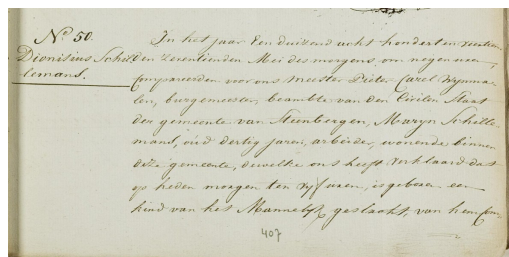 N° 50.
Dionisius Schil
lemans.
In het jaar Een duizend acht honderd en
den zeventienden Mei des morgens, om negen uren,
Compareerden voor ons Meester Pieter Carel
len, burgemeester, beambte van den Civilen Staat
der gemeente van Steenbergen, Maryn Schille-
mans, oud dertig jaren, arbeider, wonende binnen
deze gemeente, dewelke ons heeft verklaard dat
op heden morgen ten vyf uren, is geboren een
kind van het Mannelyk geslacht, van hem
407